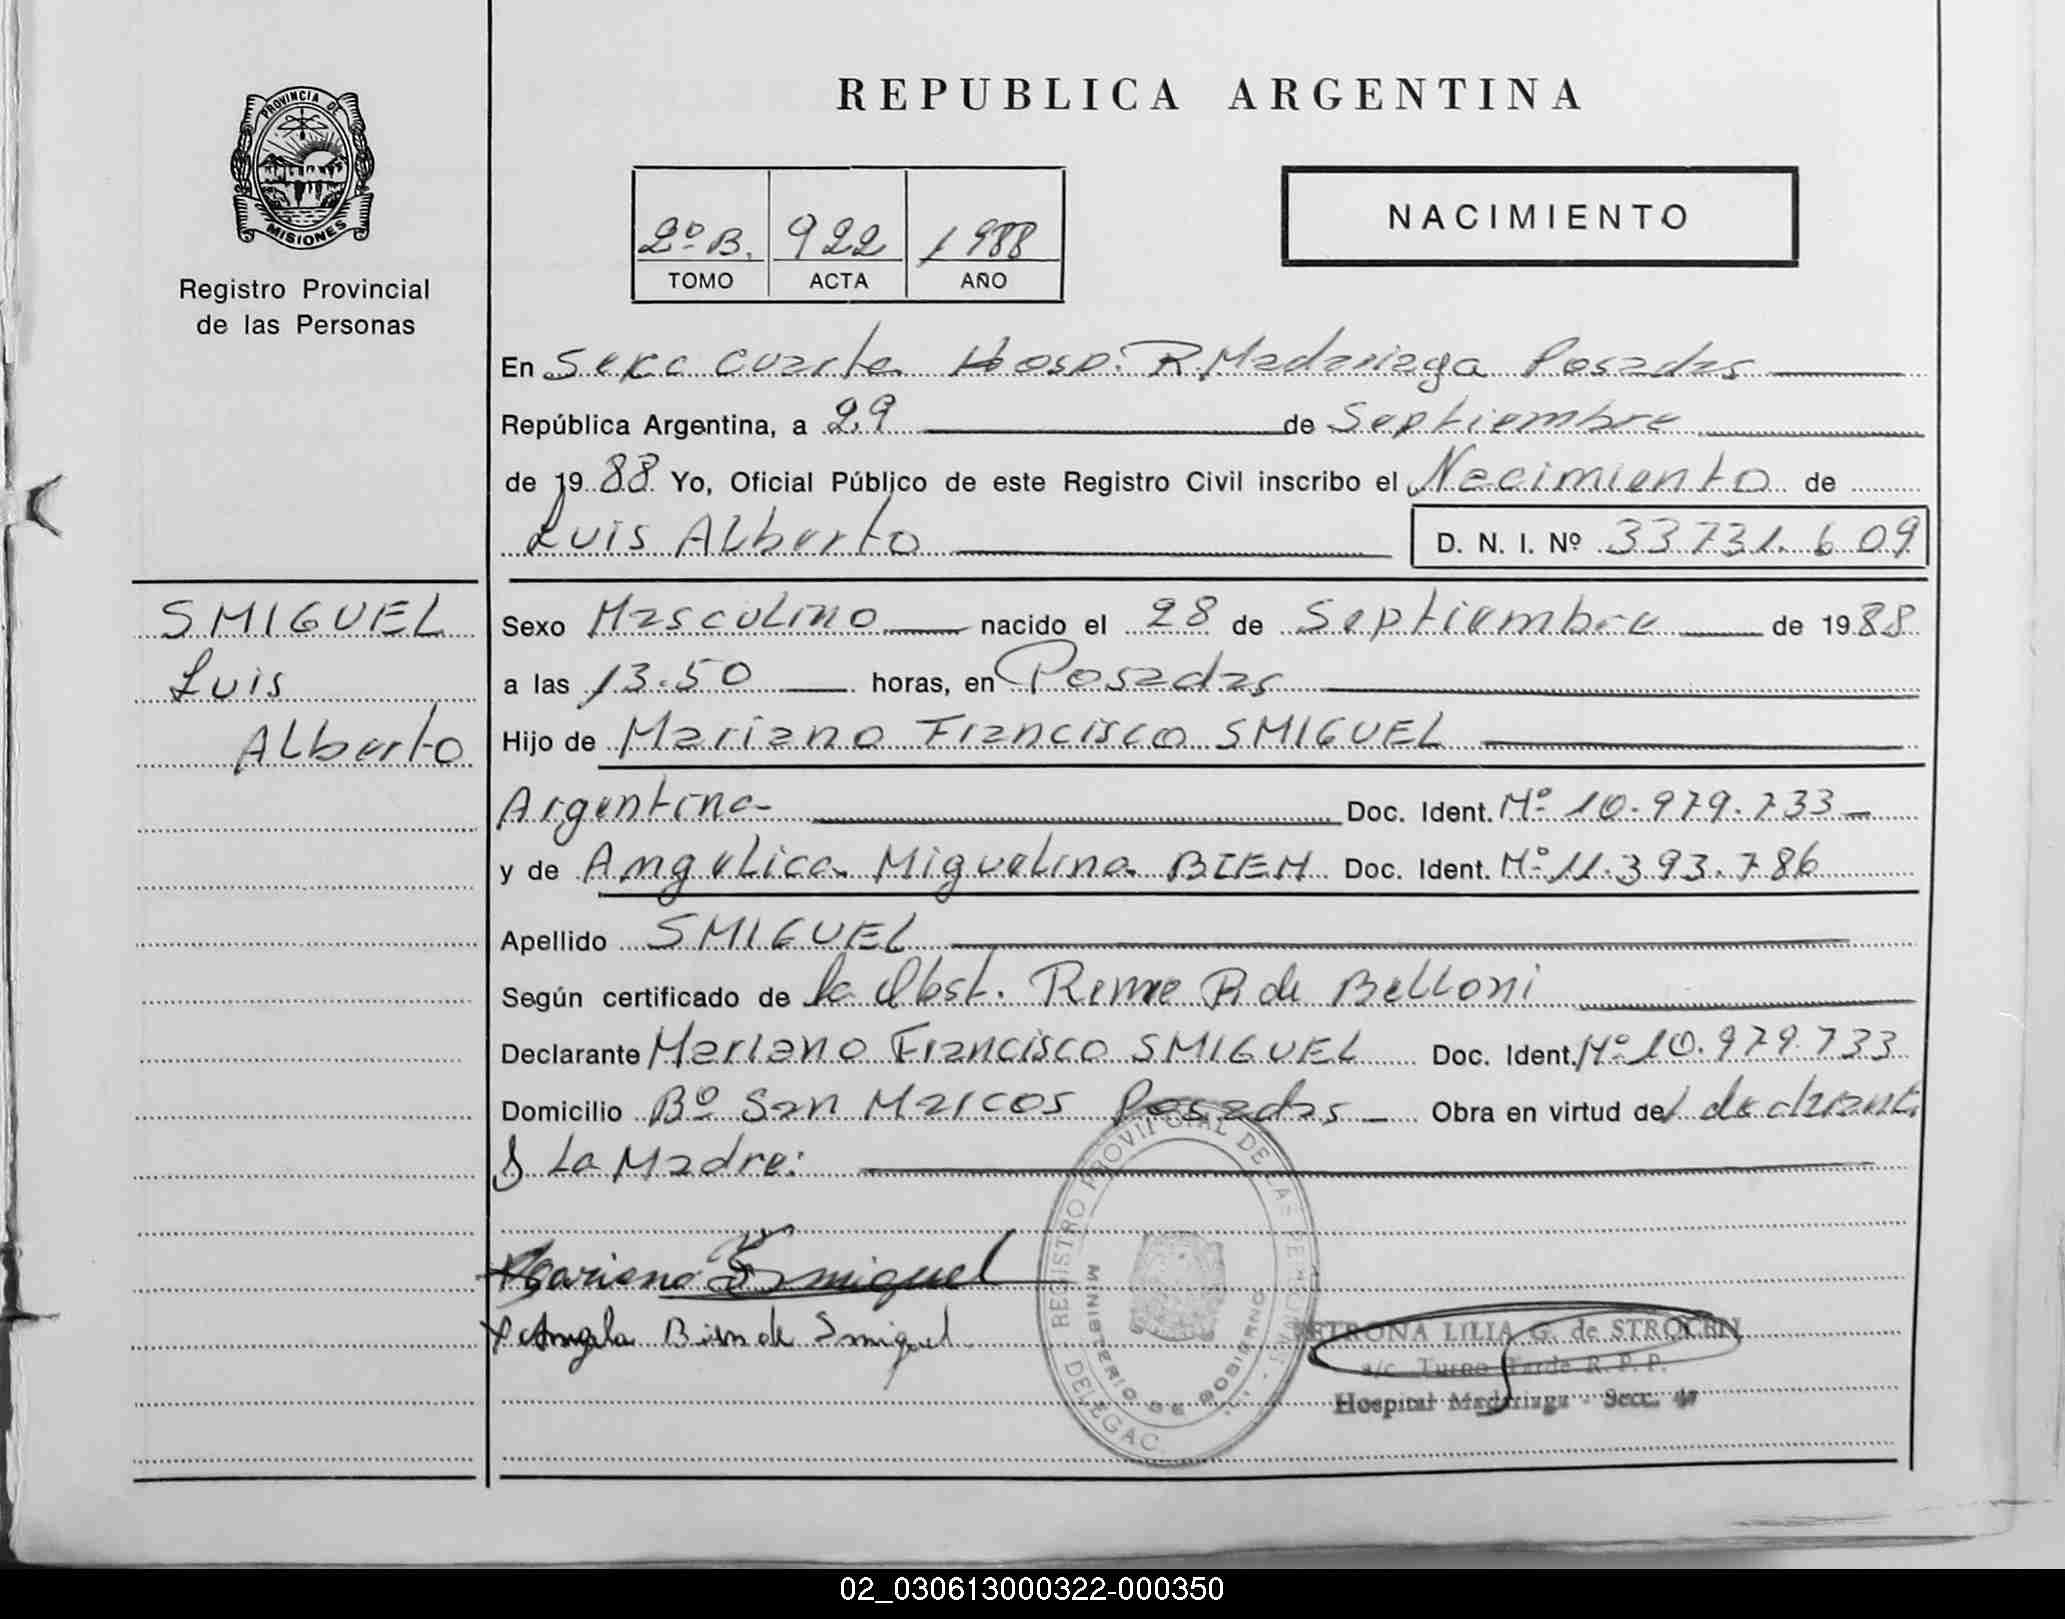 REPUBLICA ARGENTINA
PROVINCIA DE
MISIONES
Registro Provincial
de las Personas
2º B. 922 1988
TOMO ACTA AÑO
NACIMIENTO
En Secc cuarta Hosp. R. Madariaga Posadas
República Argentina, a 29 de Septiembre
de 1988 Yo, Oficial Público de este Registro Civil inscribo el Nacimiento de
Luis Alberto D. N. I. Nº 33731.609
SMIGUEL
Luis
Alberto
Sexo Masculino nacido el 28 de Septiembre de 1988
a las 13.50 horas, en Posadas
Hijo de Mariano Francisco SMIGUEL
Argentina Doc. Ident. Nº 10.979.733
y de Angelica Miguelina BIEN Doc. Ident. Nº 11.393.786
Apellido SMIGUEL
Según certificado de la Obst. Rene B de Belloni
Declarante Mariano Francisco SMIGUEL Doc. Ident. Nº 10.979.733
Domicilio Bº San Marcos Posadas Obra en virtud del declarant.
y La Madre:
Mariano F Smiguel
Angela Bien de Smiguel
REGISTRO PROVINCIAL DE LAS PERSONAS
MINISTERIO DE GOBIERNO
DELEGAC.
PETRONA LILIA G. de STROCEN
a/c. Turno Tarde R. P. P.
Hospital Madariaga - Secc. 4ª
02_030613000322-000350